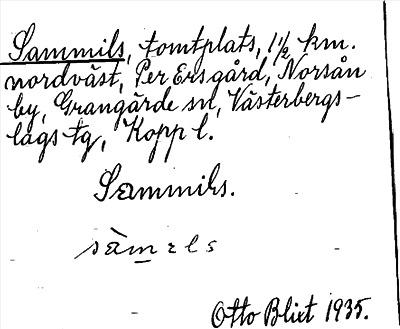 Sammils, tomtplats, 1½ km.
nordväst, Per Ers gård, Norsån
by, Grangärde sn, Västerbergs-
lags tg, Kopp l.
Sammils.
sàmɛls
Otto Blixt 1935.